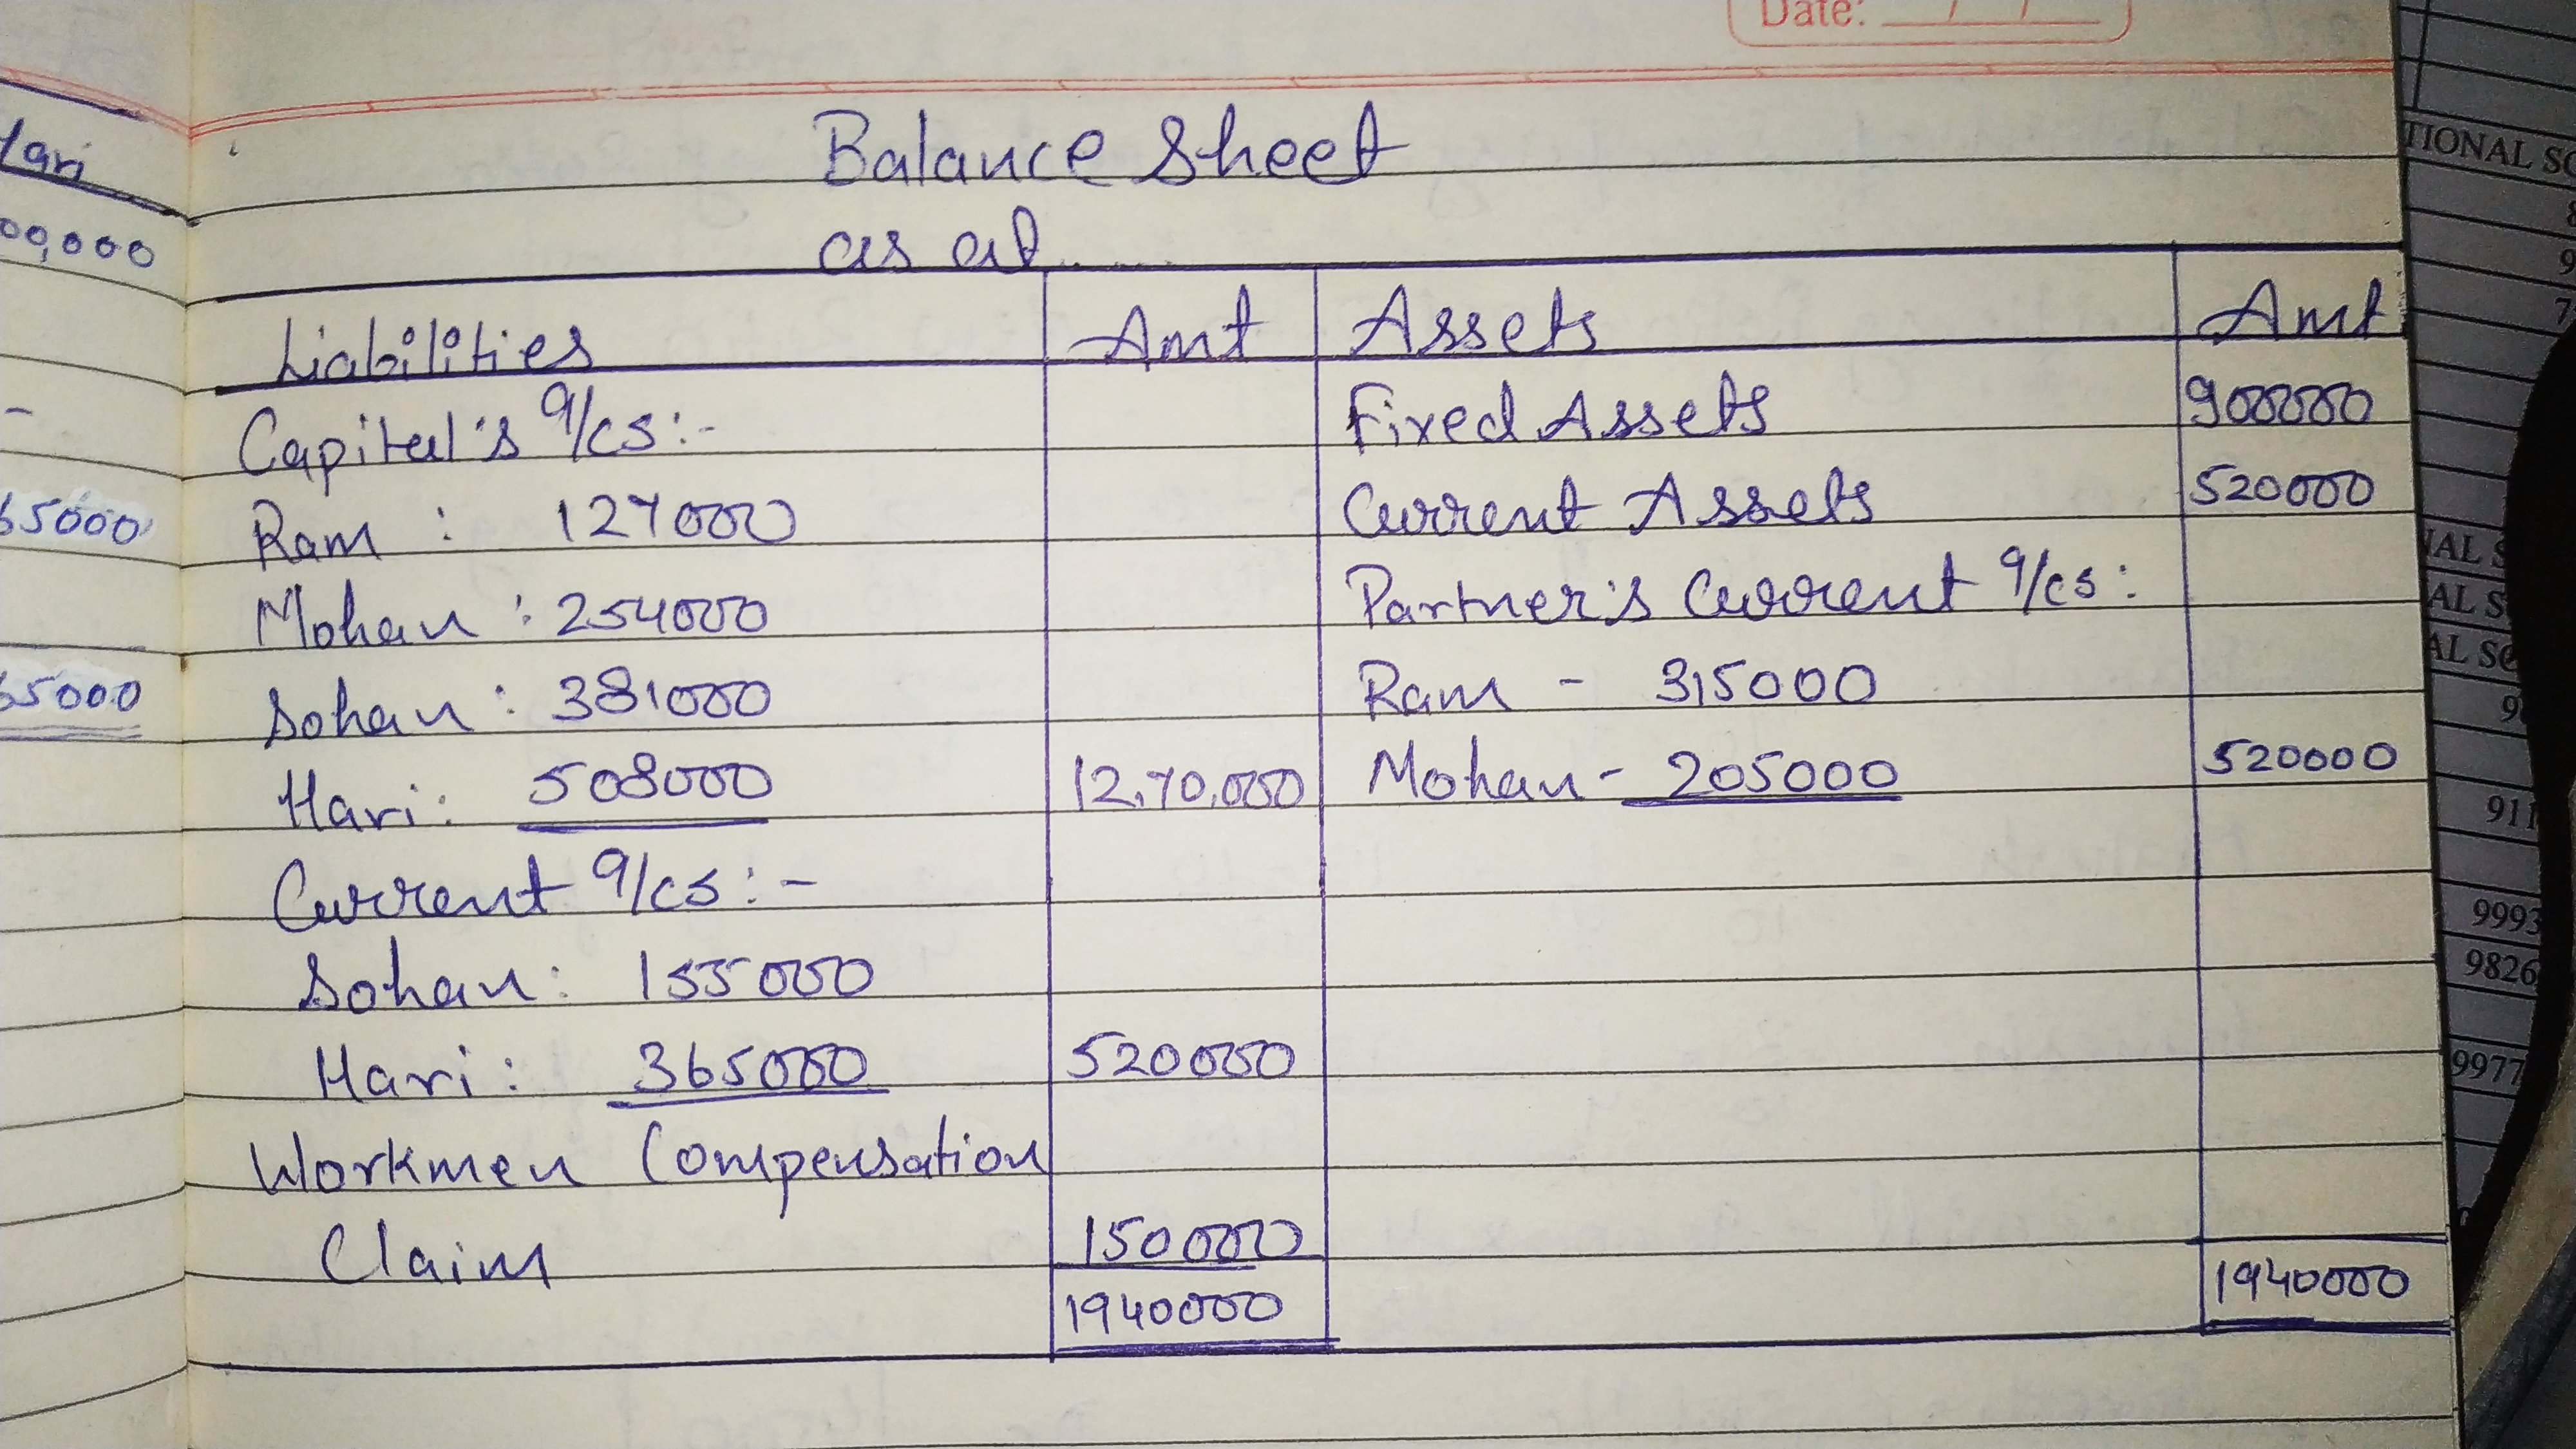 Date: __/__/__
Hari
00,000
-
65000
65000
Balance Sheet
as at......
Liabilities Amt Assets Amt
Capital's a/cs:- Fixed Assets 900000
Ram : 127000 Current Assets 520000
Mohan : 254000 Partner's Current a/cs:
Sohan : 381000 Ram - 315000
Hari: 508000 12,70,000 Mohan - 205000 520000
Current a/cs:-
Sohan: 155000
Hari: 365000 520000
Workmen Compensation
Claim 150000
1940000 1940000
TIONAL SC
9993
9826
9977
911